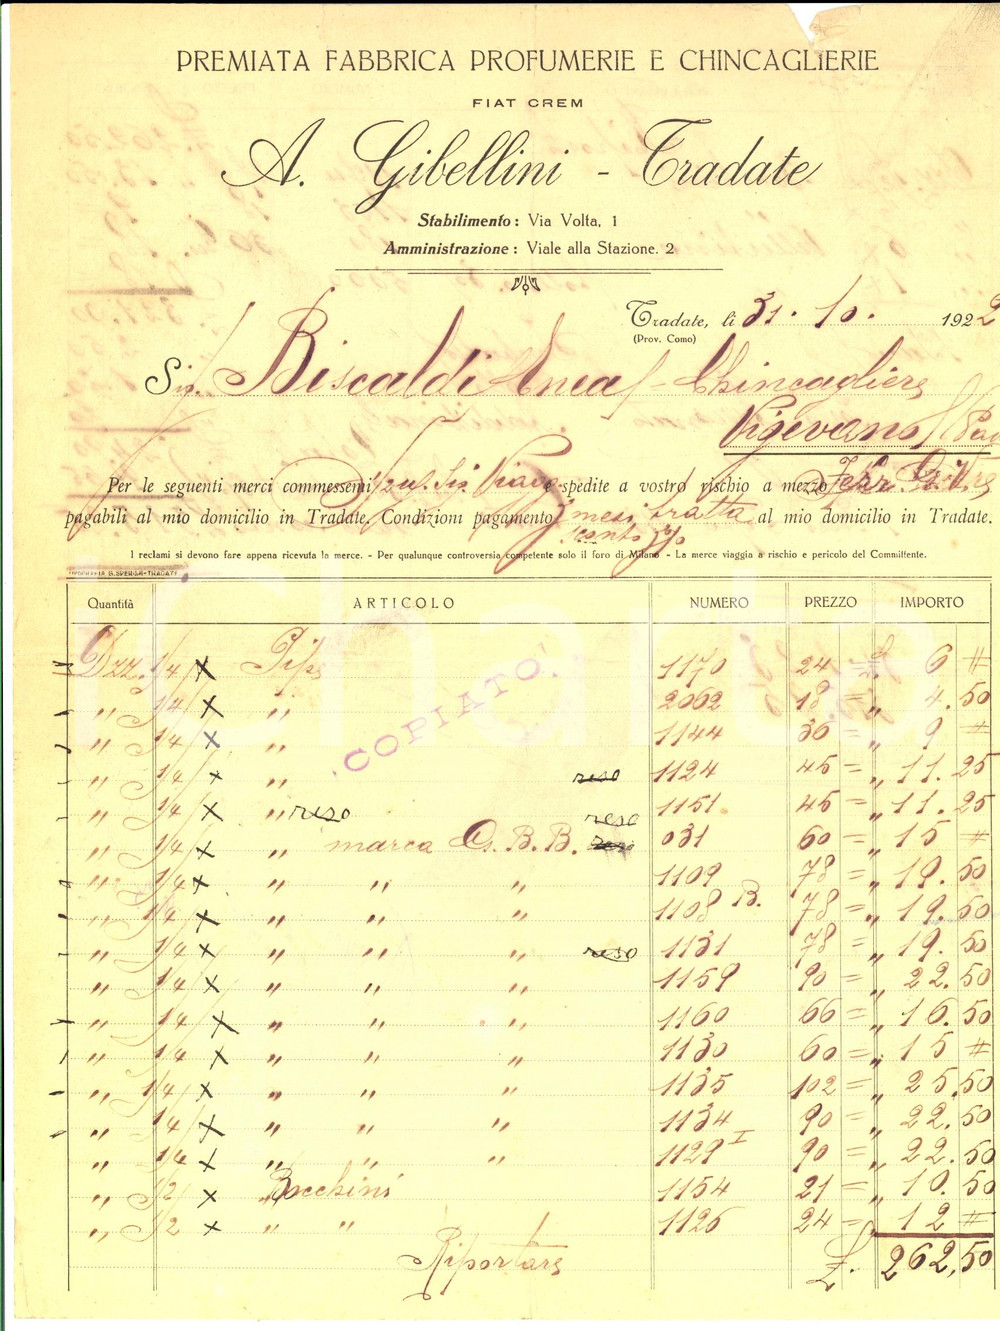 PREMIATA FABBRICA PROFUMERIE E CHINCAGLIERIE
FIAT CREM
A. Gibellini - Tradate
Stabilimento: Via Volta, 1
Amministrazione: Viale alla Stazione. 2
Tradate, li 31. 10. 1922
(Prov. Como)
Sig. Biscaldi Enea - Chincagliere
Vigevano
Per le seguenti merci commessemi spedite a vostro rischio a mezzo
pagabili al mio domicilio in Tradate. Condizioni pagamento mesi tratta al mio domicilio in Tradate.
sconto
I reclami si devono fare appena ricevuta la merce. - Per qualunque controversia competente solo il foro di Milano - La merce viaggia a rischio e pericolo del Committente.
Quantità ARTICOLO NUMERO PREZZO IMPORTO
Dzz. 1/4 x Pipe 1170 24 = £. 6 #
" 1/4 x " 2062 18 = " 4.50
" 1/4 x " 1144 36 = " 9 #
" 1/4 x " reso 1124 45 = " 11.25
" 1/4 x " reso reso 1151 45 = " 11.25
" 1/4 x " marca G.B.B. reso 031 60 = " 15 #
" 1/4 x " " " 1109 78 = " 19.50
" 1/4 x " " " 1108 B. 78 = " 19.50
" 1/4 x " " " reso 1131 78 = " 19.50
" 1/4 x " " " 1159 90 = " 22.50
" 1/4 x " " " 1160 66 = " 16.50
" 1/4 x " " " 1130 60 = " 15 #
" 1/4 x " " " 1135 102 = " 25.50
" 1/4 x " " " 1134 90 = " 22.50
" 1/4 x " " " 1129 I 90 = " 22.50
" 1/2 x Bocchini 1154 21 = " 10.50
" 1/2 x " " 1126 24 = " 12 #
Riportare £. 262,50
COPIATO
Charta